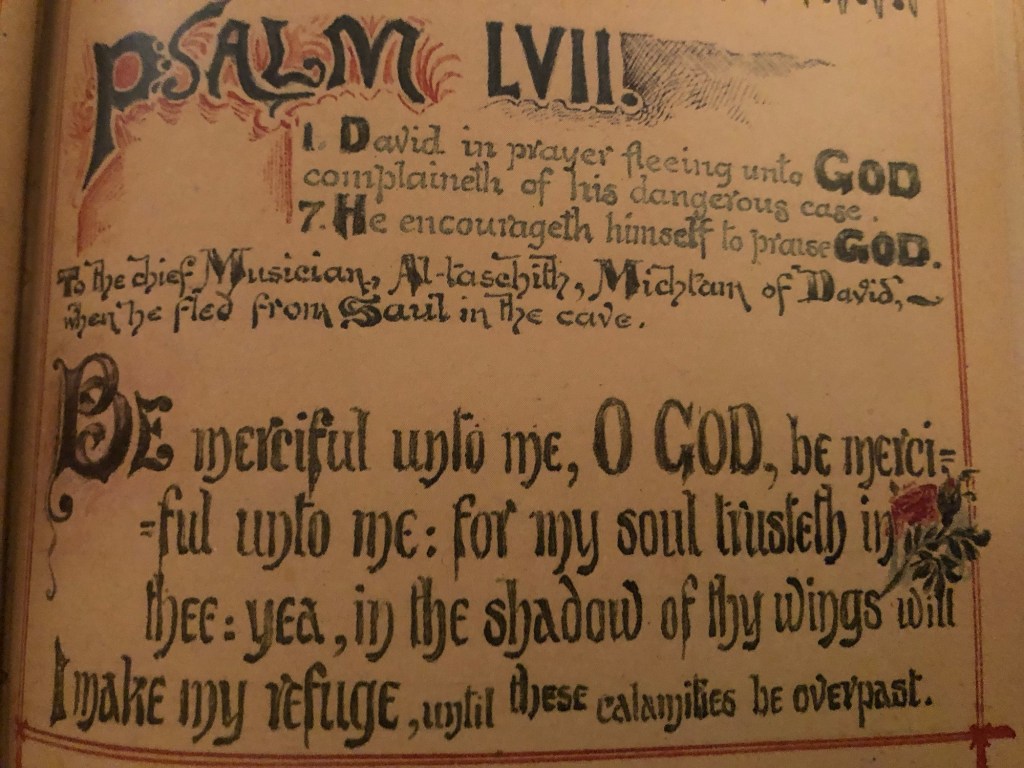 PSALM LVII.
1. David in prayer fleeing unto GOD
complaineth of his dangerous case.
7. He encourageth himself to praise GOD.
To the chief Musician, Al-taschith, Michtam of David, ~
when he fled from Saul in the cave.
BE merciful unto me, O GOD, be merci=
=ful unto me: for my soul trusteth in
thee: yea, in the shadow of thy wings will
I make my refuge, until these calamities be overpast.